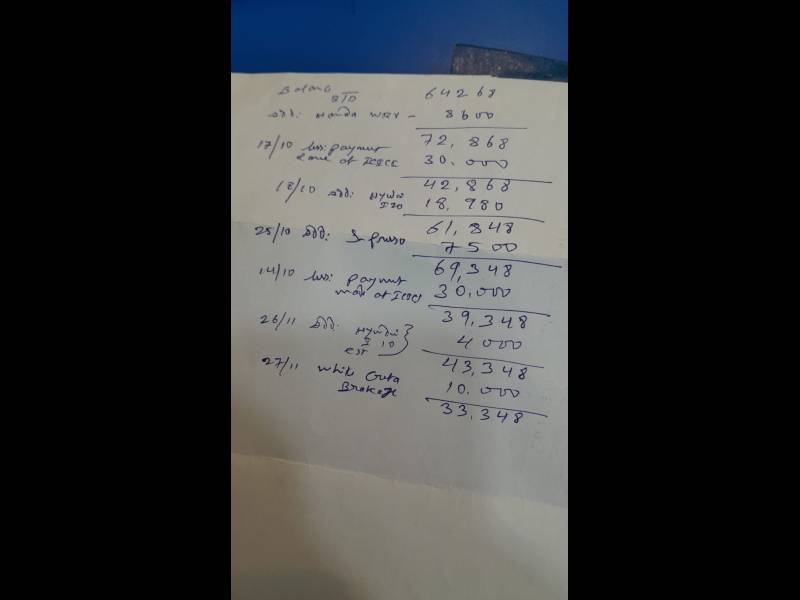 Balance 64268
B/D
Add: Honda WRV - 8600
72,868
17/10 less: payment 30.000
at ICICI
42,868
18/10 Add: Hyundai 18.980
I20
61,848
25/10 Add: 7500
69,348
14/10 less: payment
made at ICICI 30.000
39,348
26/11 Add: Hyundai
I 10 4000
43,348
27/11 White Creta 10.000
Brokage
33,348